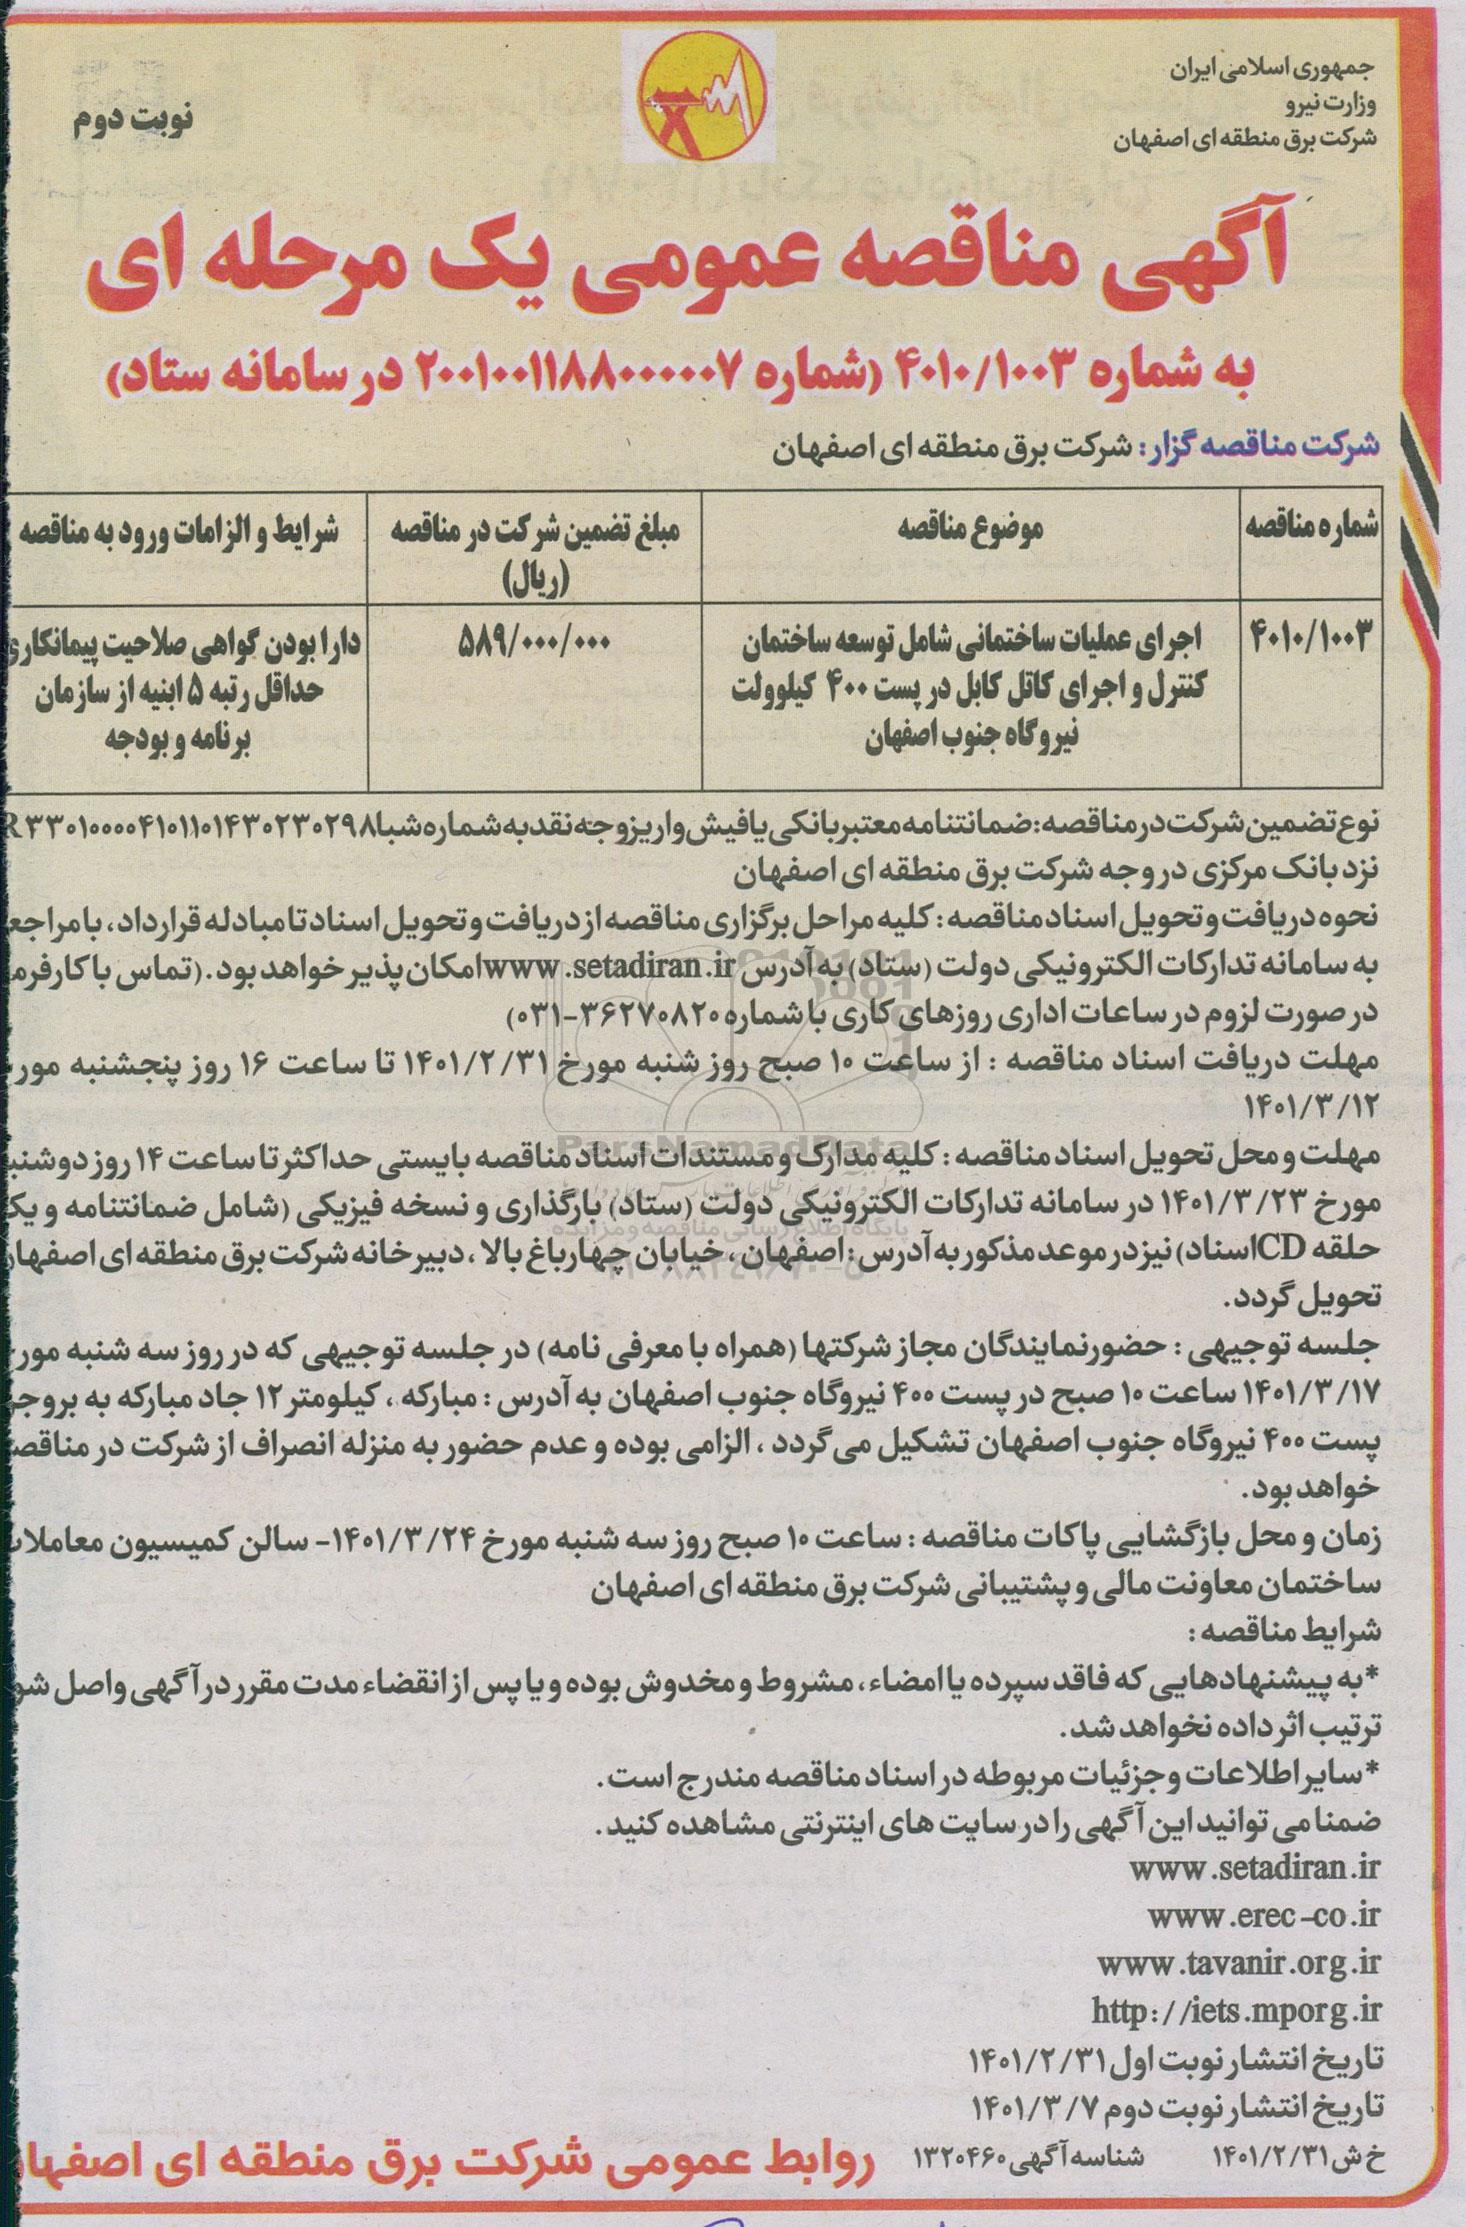 جمهوری اسلامی ایران
وزارت نیرو
شرکت برق منطقه ای اصفهان
نوبت دوم
آگهی مناقصه عمومی یک مرحله ای
به شماره ۴۰۱۰/۱۰۰۳ (شماره ۲۰۰۱۰۰۱۱۸۸۰۰۰۰۰۷ در سامانه ستاد)
شرکت مناقصه گزار: شرکت برق منطقه ای اصفهان
شماره مناقصه
موضوع مناقصه
مبلغ تضمین شرکت در مناقصه
(ریال)
شرایط و الزامات ورود به مناقصه
۴۰۱۰/۱۰۰۳
اجرای عملیات ساختمانی شامل توسعه ساختمان
کنترل و اجرای کانل کابل در پست ۴۰۰ کیلوولت
نیروگاه جنوب اصفهان
۵۸۹/۰۰۰/۰۰۰
دارا بودن گواهی صلاحیت پیمانکاری
حداقل رتبه ۵ ابنیه از سازمان
برنامه و بودجه
نوع تضمین شرکت در مناقصه: ضمانتنامه معتبر بانکی یا فیش واریز وجه نقد به شماره شبا R۳۳۰۱۰۰۰۰۴۱۰۱۱۰۱۴۳۰۲۳۰۲۹۸
نزد بانک مرکزی در وجه شرکت برق منطقه ای اصفهان
نحوه دریافت و تحویل اسناد مناقصه: کلیه مراحل برگزاری مناقصه از دریافت و تحویل اسناد تا مبادله قرارداد، با مراجع
به سامانه تدارکات الکترونیکی دولت (ستاد) به آدرس www.setadiran.ir امکان پذیر خواهد بود. (تماس با کارفرما
در صورت لزوم در ساعات اداری روزهای کاری با شماره ۳۶۲۷۰۸۲۰-۰۳۱)
مهلت دریافت اسناد مناقصه : از ساعت ۱۰ صبح روز شنبه مورخ ۱۴۰۱/۲/۳۱ تا ساعت ۱۶ روز پنجشنبه مور
۱۴۰۱/۳/۱۲
مهلت و محل تحویل اسناد مناقصه : کلیه مدارک و مستندات اسناد مناقصه بایستی حداکثر تا ساعت ۱۴ روز دوشنب
مورخ ۱۴۰۱/۳/۲۳ در سامانه تدارکات الکترونیکی دولت (ستاد) بارگذاری و نسخه فیزیکی (شامل ضمانتنامه و یک
حلقه CD اسناد) نیز در موعد مذکور به آدرس: اصفهان، خیابان چهارباغ بالا، دبیرخانه شرکت برق منطقه ای اصفهان
تحویل گردد.
جلسه توجیهی : حضور نمایندگان مجاز شرکتها (همراه با معرفی نامه) در جلسه توجیهی که در روز سه شنبه مور
۱۴۰۱/۳/۱۷ ساعت ۱۰ صبح در پست ۴۰۰ نیروگاه جنوب اصفهان به آدرس : مبارکه ، کیلومتر ۱۲ جاد مبارکه به بروجر
پست ۴۰۰ نیروگاه جنوب اصفهان تشکیل می گردد ، الزامی بوده و عدم حضور به منزله انصراف از شرکت در مناقصه
خواهد بود.
زمان و محل بازگشایی پاکات مناقصه : ساعت ۱۰ صبح روز سه شنبه مورخ ۱۴۰۱/۳/۲۴- سالن کمیسیون معاملات
ساختمان معاونت مالی و پشتیبانی شرکت برق منطقه ای اصفهان
شرایط مناقصه :
*به پیشنهادهایی که فاقد سپرده یا امضاء، مشروط و مخدوش بوده و یا پس از انقضاء مدت مقرر در آگهی واصل شو
ترتیب اثر داده نخواهد شد.
*سایر اطلاعات و جزئیات مربوطه در اسناد مناقصه مندرج است.
ضمنا می توانید این آگهی را در سایت های اینترنتی مشاهده کنید.
www.setadiran.ir
www.erec-co.ir
www.tavanir.org.ir
http://iets.mporg.ir
تاریخ انتشار نوبت اول ۱۴۰۱/۲/۳۱
تاریخ انتشار نوبت دوم ۱۴۰۱/۳/۷
خ ش ۱۴۰۱/۲/۳۱
شناسه آگهی ۱۳۲۰۴۶۰
روابط عمومی شرکت برق منطقه ای اصفهان
ParsNamadData
پایگاه اطلاع رسانی مناقصه و مزایده